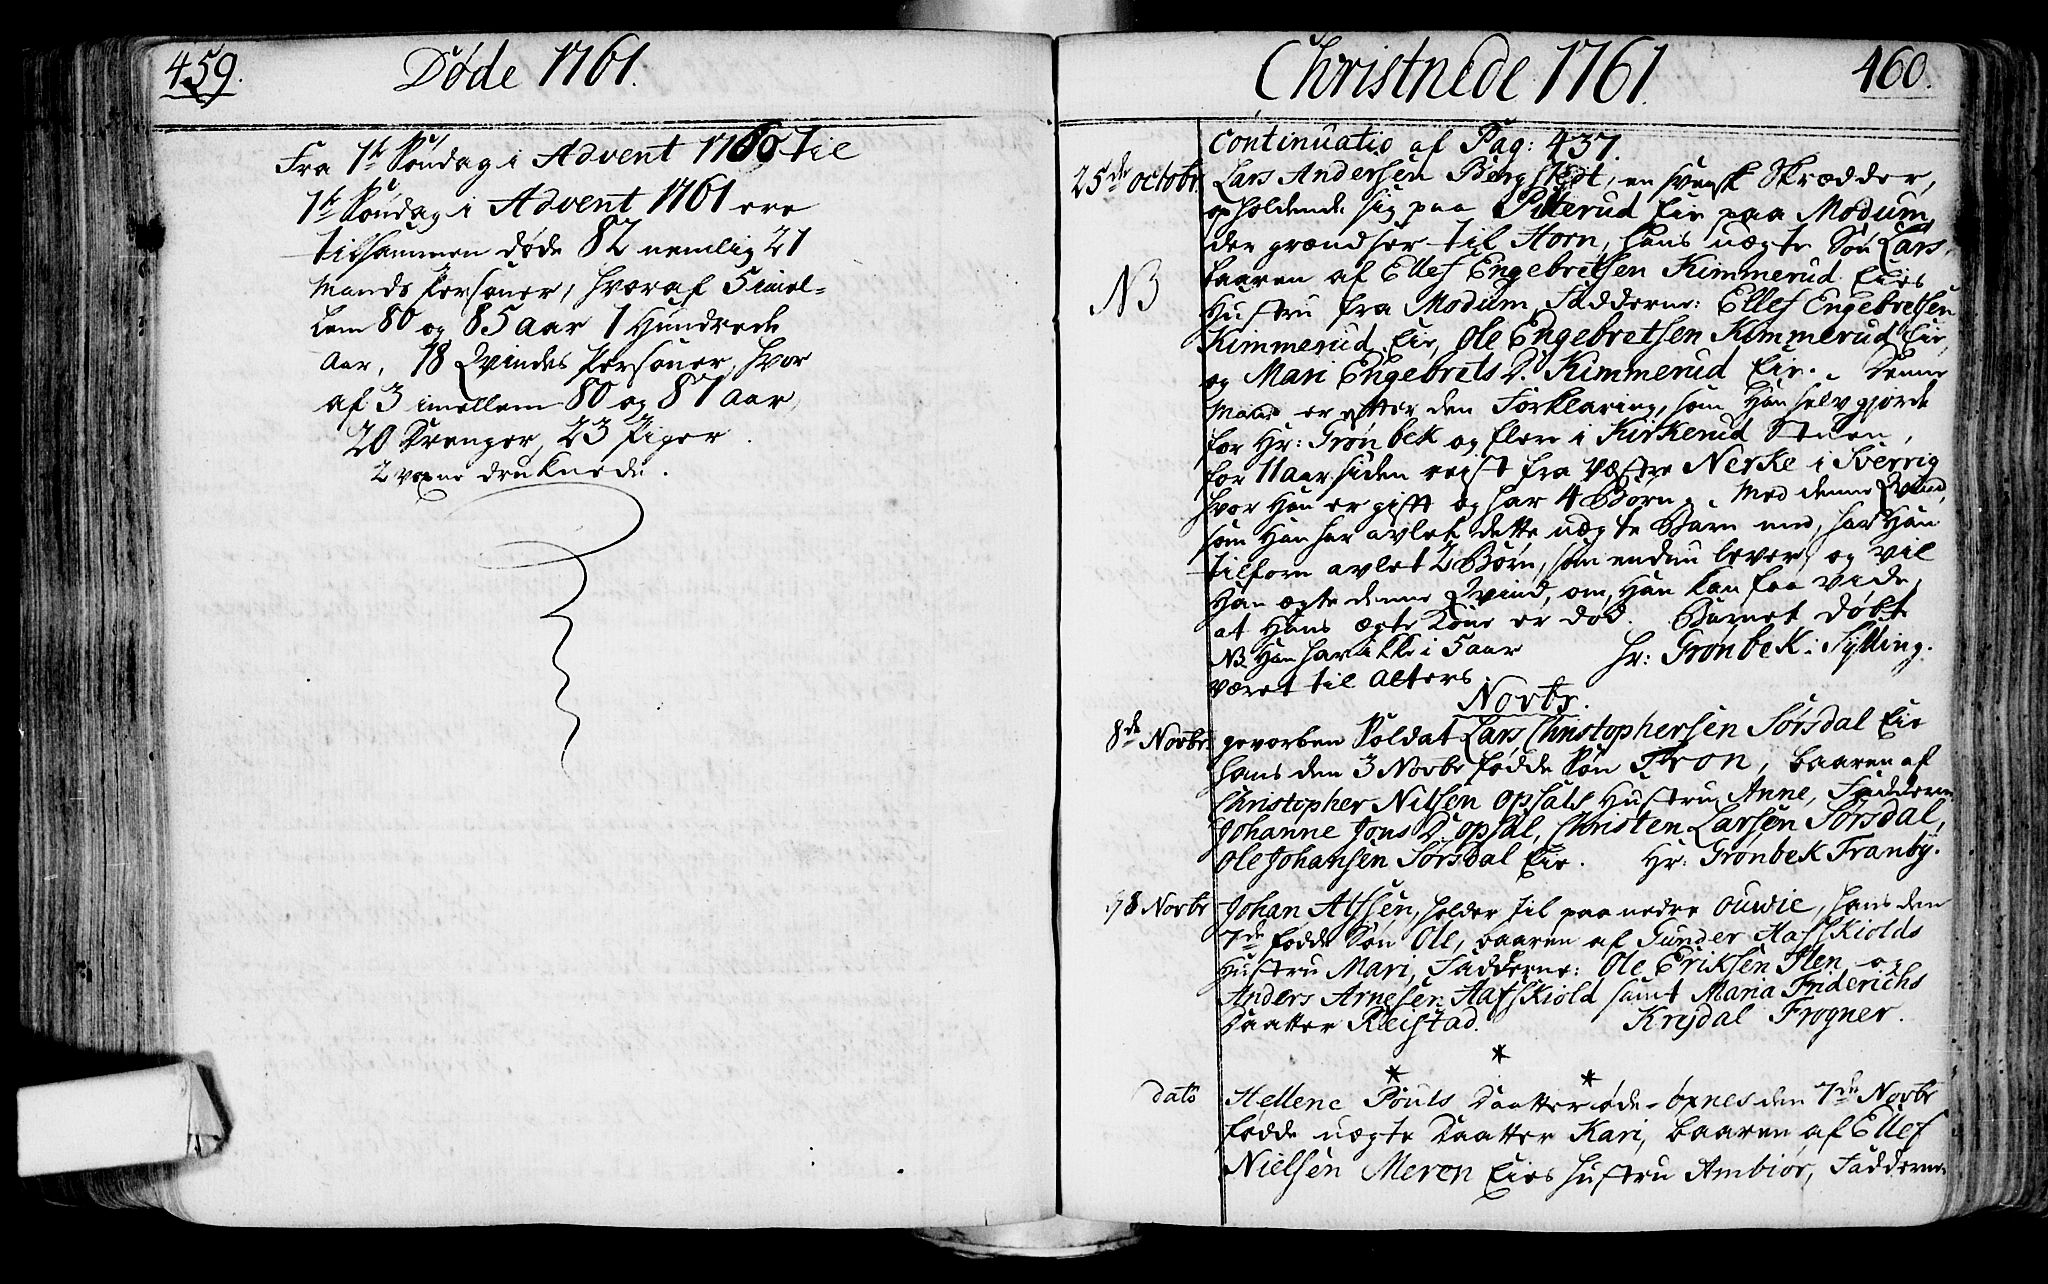 459.
Døde 1761.
Fra 1te Søndag i Advent 1760 til
1te Søndag i Advent 1761 ere
tilsammen døde 82 nemlig 21
Mands Personer, hvoraf 5 imel-
lem 80 og 85 Aar 1 Hundrede
Aar, 18 Qvindes Personer, hvor
af 3 imellem 80 og 87 Aar,
20 Drenger, 23 Piger.
2 voxne druknede.
Christnede 1761.
460.
Continuatio af Pag: 437.
25de octobr. Lars Andersen Bergstedt, en svensk Skrædder,
opholdende sig paa Pitterud Eie paa Modum,
der grændser til Horn, hans uægte Søn Lars,
baaren af Ellef Engebretsen Kimmerud Eies
NB Hustru fra Modum, Fadderne: Ellef Engebretsen
Kimmerud Eie, Ole Engebretsen Kimmerud Eie,
og Mari Engebrets D. Kimmerud Eie. Denne
Mand er efter den Forklaring, som Han selv gjorde
for Hr: Grønbek og flere i Kirkerud Stuen,
for 11 Aar siden reist fra Vestre Nerke i Sverrig
hvor Han er gift og har 4 Børn. Med denne Qvind,
som Han har avlet dette uægte Barn med, har Han
tilforn avlet 2 Børn, som endnu lever, og vil
Han ægte denne Qvind, om Han kan faa vide,
at Hans ægte Kone er død. Barnet døbt
NB. Han har ikke i 5 aar Hr: Grønbek i Sylling.
været til Alters.
Novbr.
8de Novbr. gevorben Soldat Lars Christophersen Sørsdal Eie
hans den 3 Novbr fødde Søn Tron, baaren af
Christopher Nilsen Opsals Hustru Anne, Fadderne
Johanne Jons D. Opsal, Christen Larsen Sørsdal,
Ole Johansen Sørsdal Eie. Hr: Grønbek Tranby.
18 Novbr Johan Alfsen, holder til paa nedre Ouwie, hans den
7de fødde Søn Ole, baaren af Gunder Hafskiolds
Hustru Mari, Fadderne: Ole Eriksen Ilen og
Anders Arnesen Hafskiold samt Maria Friderichs
Daatter Reistad. Krydal Frogner.
* * *
dato Hellene Pouls Daatter øde-Opnes den 7de Novbr
fødde uægte Daatter Kari, baaren af Ellef
Nielsen Meren Eies Hustru Ambiør, Fadderne